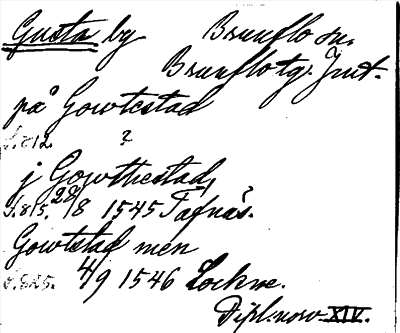 Gusta by Brunflo sn.
Brunflo tg. Jmt.
på Gowtestad
S. 812. ?
j Gowthestad,
S. 815. 28/8 1545 Tafnäs. ?
Gowtstad men
S. 825. 4/9 1546 Lockne.
Dipl. norv. XIV.